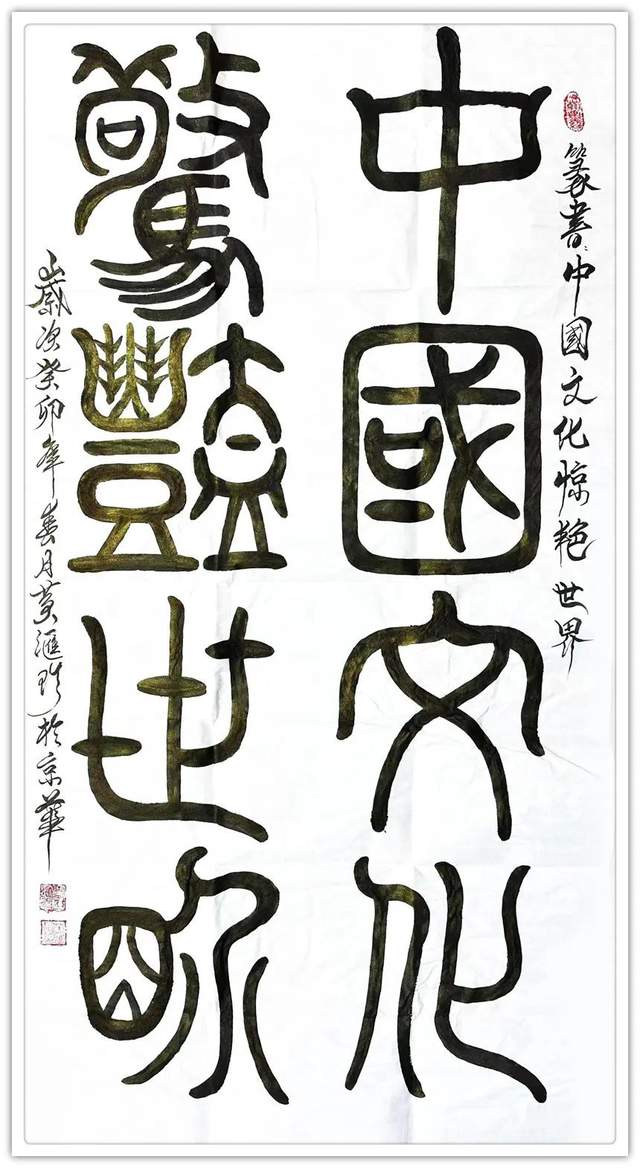 篆書:中國文化惊艳世界
中國文化
驚豔世界
嵗次癸卯年春月黃滙於京華